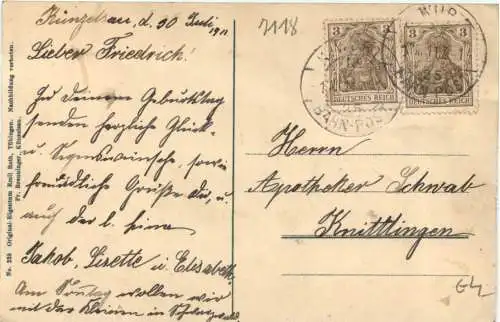 Künzelsau, d. 30 Juli 11
Lieber Friedrich!
Zu deinem Geburtstag
senden herzliche Glück-
u. Segenswünsche, sowie
freundliche Grüße dir, u.
auch der l. Lina
Jakob, Lisette u. Elisabeth
Am Sonntag wollen wir
mit das Kleinen in
7118
3
DEUTSCHES REICH
3
DEUTSCHES REICH
BAHN-POST
WÜR
Herrn
Apotheker Schwab
Knittlingen
No. 259 Original-Eigentum Emil Roth, Tübingen. Nachbildung verboten.
Fr. Brenninger, Künzelsau.